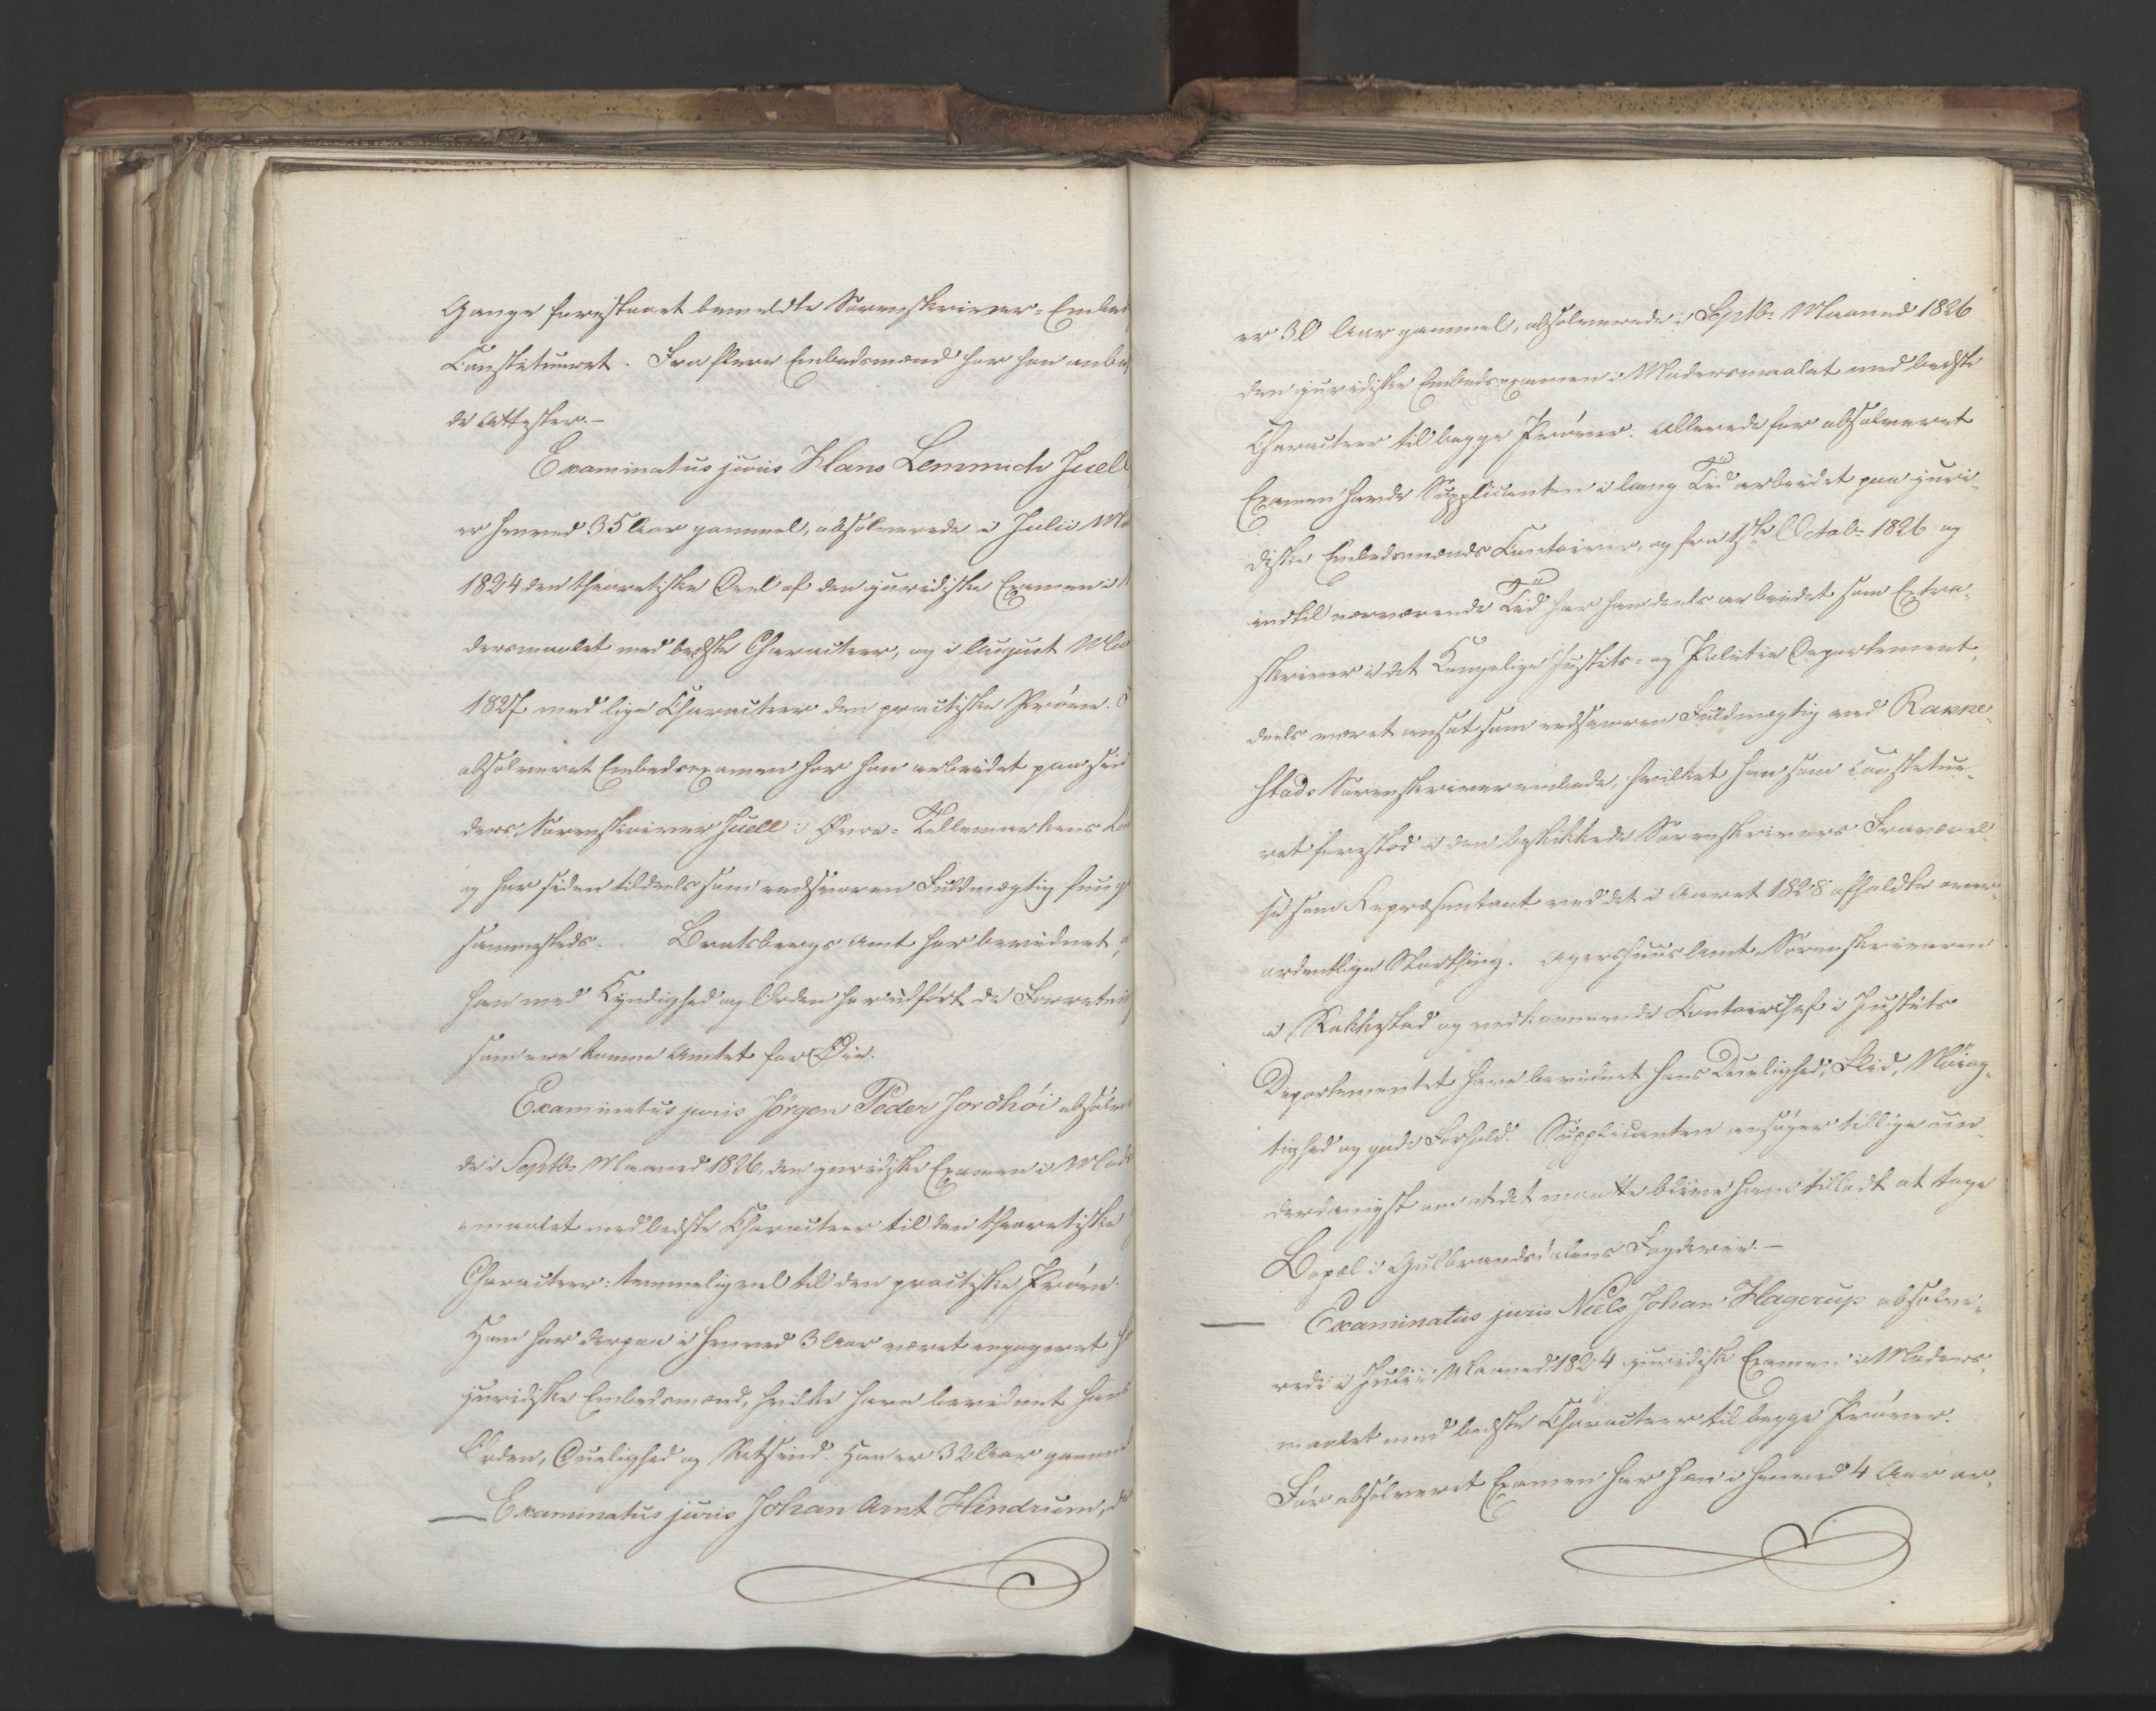 Gange forestaaet bemeldte Sorenskriver-Embed
Constitueret. Fra flere Embedsmænd har han anbe
de Attester.-
Examinatus juris Hans Lemmich Juell
er henved 35 Aar gammel, absolverede i Julii Ma
1824 den theoretiske Deel af den juridiske Examen i
dersmaalet med bedste Characteer, og i August Ma
1827 med lige Characteer den practiske Prøve.
absolveret Embedsexamen har han arbeidet paa sin
ders, Sorenskriver Juell i Øvre-Tellemarkens
og har siden tildeels som edsvoren Fuldmægtig fung
sammesteds. Bratsbergs Amt har bevidnet,
han med Kyndighed og Orden har udført de Forretni
som ere komne Amtet for Øie.
Examinatus juris Jörgen Peder Jordhöi absolve
de i Septbr Maaned 1826, den juridiske Examen i Mod
maalet med bedste Characteer til den theoretiske
Characteer: temmelig vel til den practiske Prøve.
Han har derpaa i henved 3 Aar været engageret h
juridiske Embedsmænd, hvilke have bevidnet hans
Orden, Duelighed og Retsind. Han er 32 Aar gamme
Examinatus juris Johan Arnt Hindrum,
er 30 Aar gammel, absolverede i Septbr Maaned 1826
den juridiske Embedsexamen i Modersmaalet med bedste
Characteer til begge Prøver. Allerede før absolveret
Examen havde Supplicanten i lang Tid arbeidet paa juri-
diske Embedsmænds Contoirer, og fra 1ste Octobr 1826 og
indtil nærværende Tid har han deels arbeidet som Extra-
skriver i det Kongelige Justits- og Politie Departement,
deels været ansat som edsvoren Fuldmægtig ved Rakke-
stads Sorenskriverembede, hvilket han som Constitue-
ret forestod i den beskikkede Sorenskrivers Fraværel-
se som Repræsentant ved det i Aaret 1828 afholdte over-
ordentlige Storthing. Agershuus Amt, Sorenskriveren
i Rakkestad og vedkommende Contoirchef i Justits
Departementet have bevidnet hans Duelighed, Flid, Nøiag-
tighed og gode Forhold. Supplicanten ansøger tillige un-
derdanigst om at det maatte blive ham tilladt at tage
Bopæl i Gulbrandsdalens Fogderie.-
Examinatus juris Niels Johan Hagerup absolve-
rede i Julii Maaned 1824 juridisk Examen i Moders-
maalet med bedste Characteer til begge Prøver.
Før absolveret Examen har han i henved 4 Aar ar-